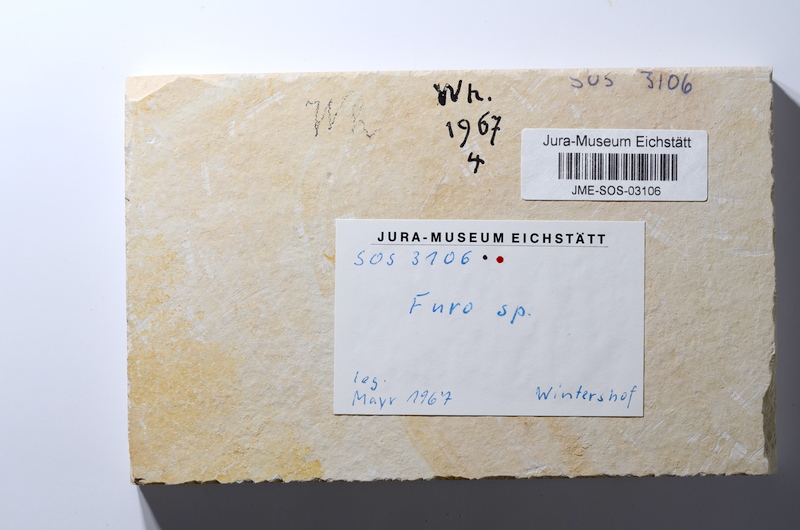 SOS 3106
Wh.
1967
4
Wh
Jura-Museum Eichstätt
JME-SOS-03106
JURA-MUSEUM EICHSTÄTT
SOS 3106
Furo sp.
leg.
Mayr 1967
Wintershof